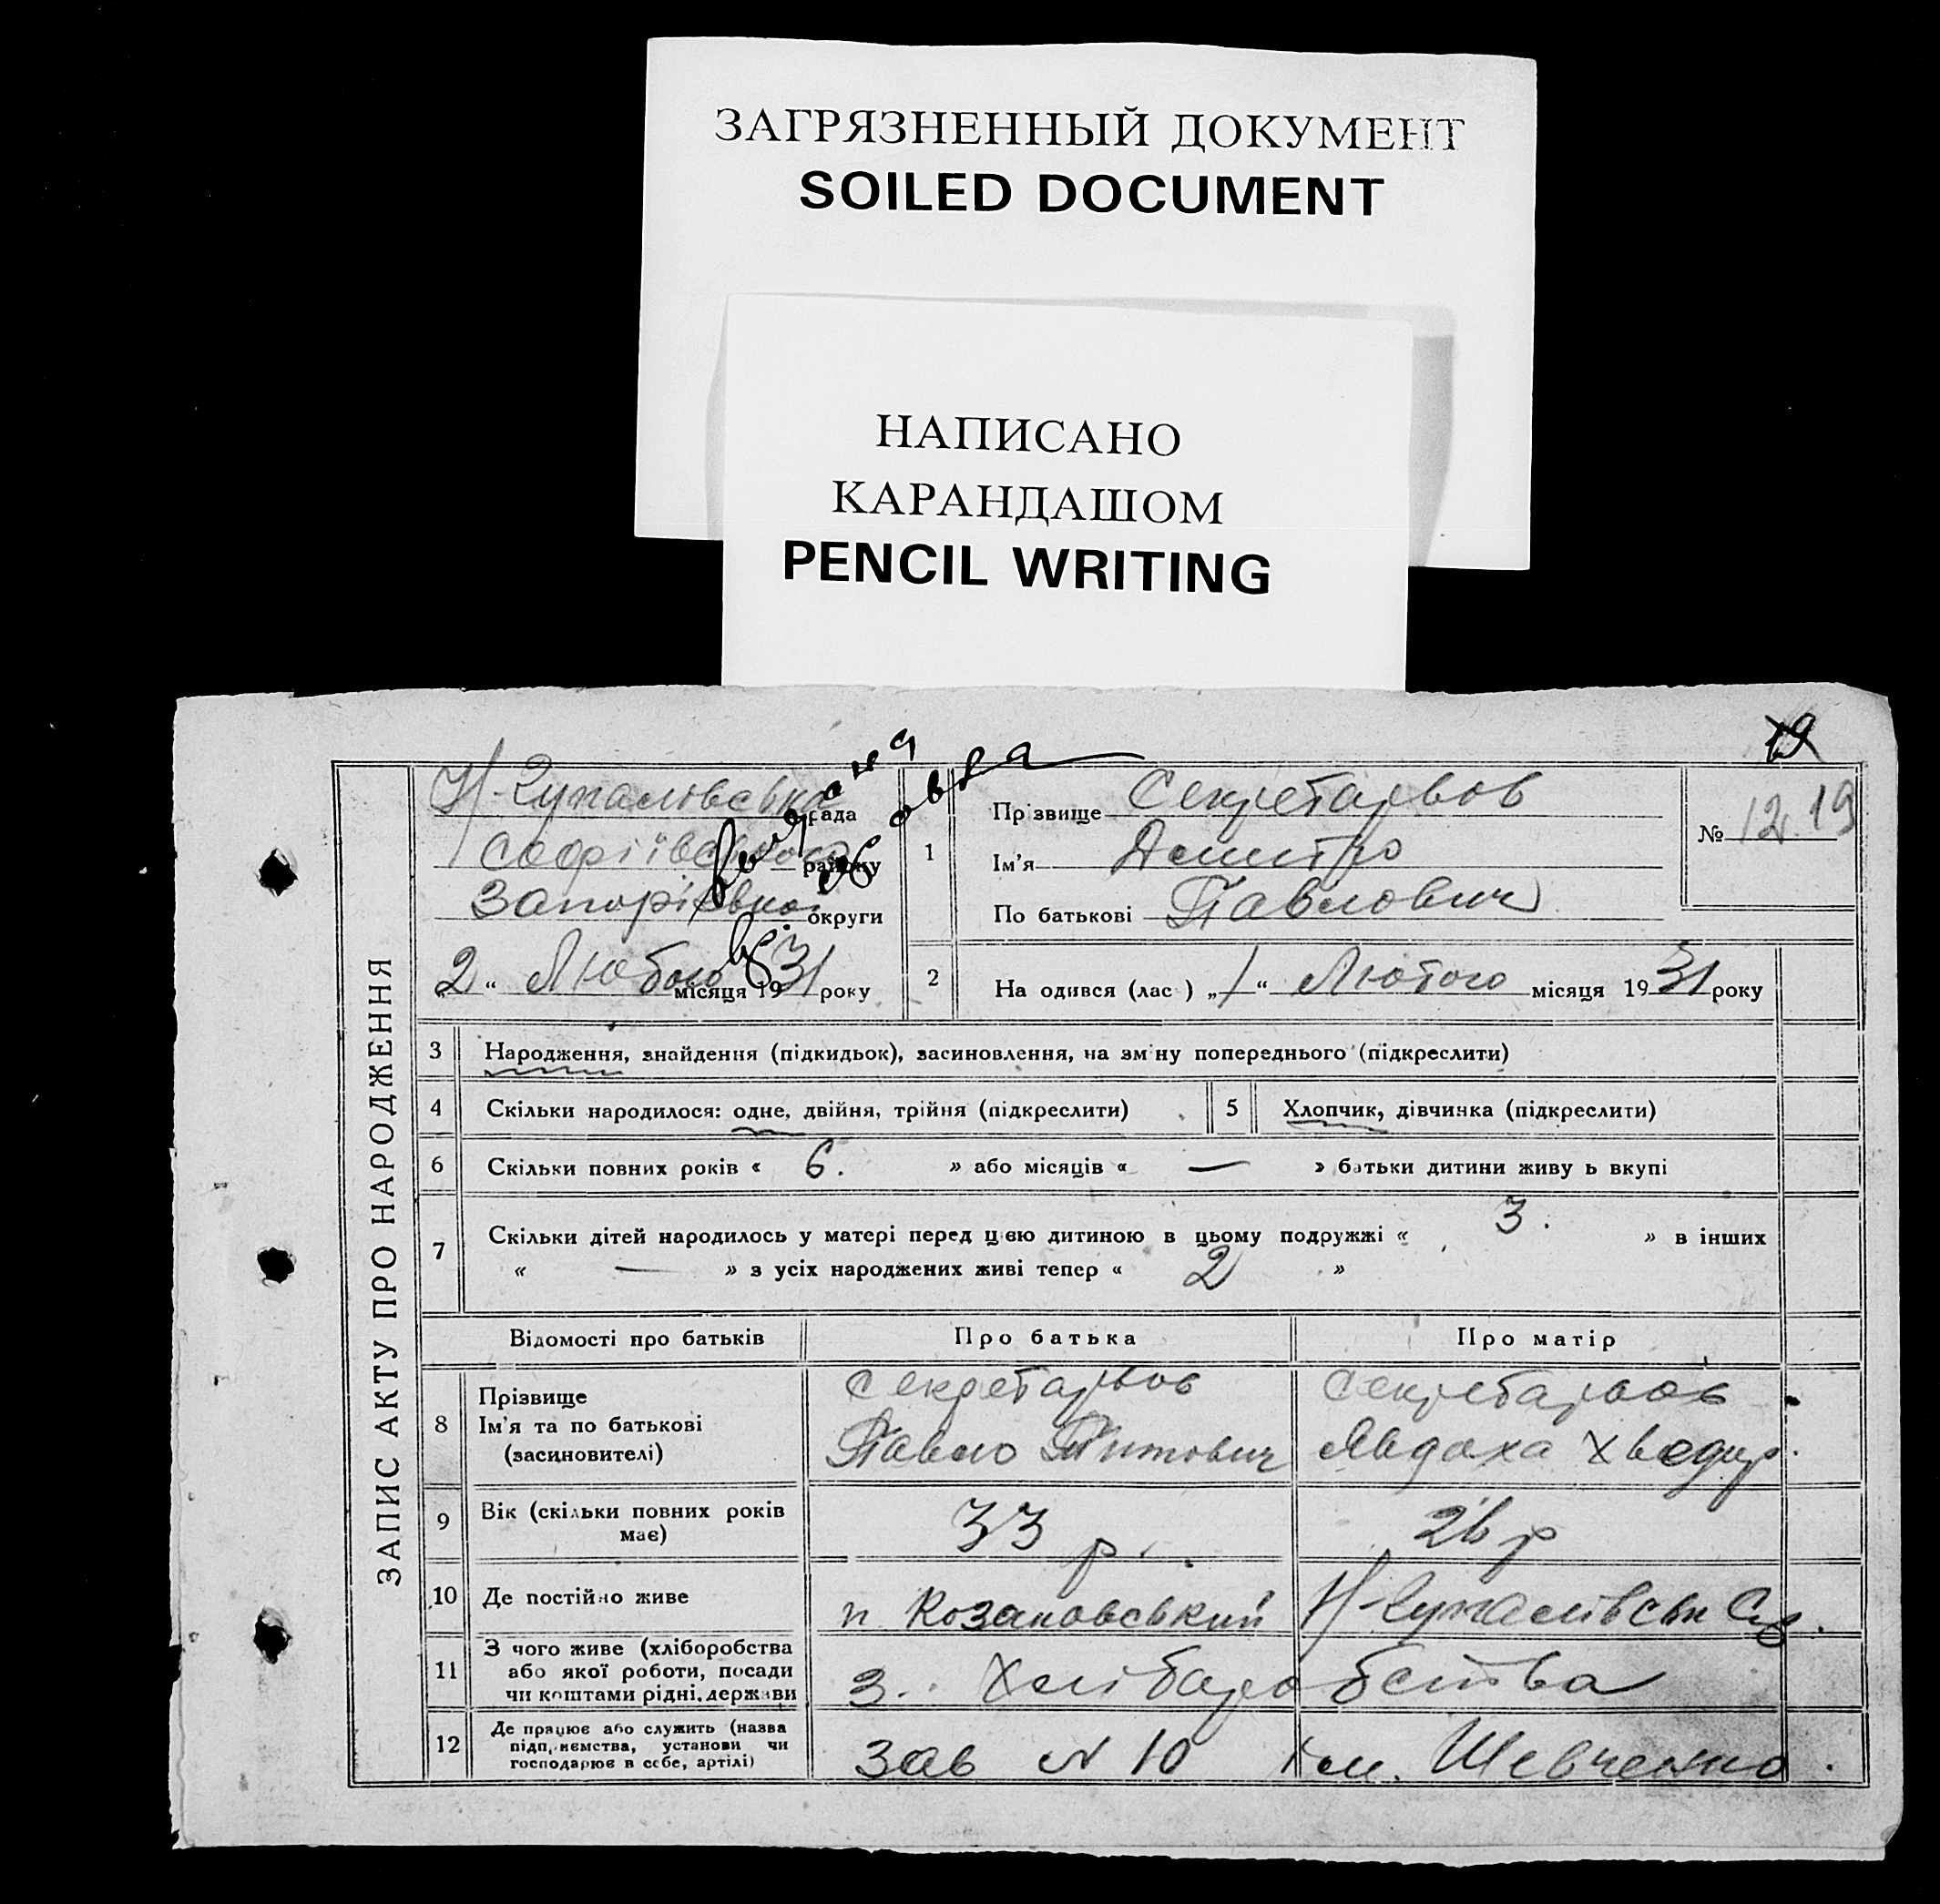 ЗАГРЯЗНЕННЫЙ ДОКУМЕНТ
SOILED DOCUMENT
НАПИСАНО
КАРАНДАШОМ
PENCIL WRITING
19
ЗАПИС АКТУ ПРО НАРОДЖЕННЯ
рада
Софіївського району
округи
„2“ Лютого місяця 1931 року
1
Прізвище Секретарьов
Ім'я Дмитро
По батькові Павлович
№ 12 19
2 На одився (лас ) „1“ Лютого місяця 1931 року
3 Народження, знайдення (підкидьок), засиновлення, на зміну попереднього (підкреслити)
4 Скільки народилося: одне, двійня, трійня (підкреслити)
5 Хлопчик, дівчинка (підкреслити)
6 Скільки повних років « 6. » або місяців « — » батьки дитини живу ь вкупі
7 Скільки дітей народилось у матері перед цією дитиною в цьому подружжі « 3. » в інших
« — » з усіх народжених живі тепер « 2 »
Відомості про батьків Про батька Про матір
8 Прізвище
Ім'я та по батькові
(засиновителі)
Секретарьов
Павло Титович
Секретарьов
Явдоха Хведир.
9 Вік (скільки повних років
має)
33 р.
26 р
10 Де постійно живе
п. Козановський
11 З чого живе (хліборобства
або якої роботи, посади
чи коштами рідні, держави
З. Хлібаробства
12 Де працює або служить (назва
підприємства, установи чи
господарює в себе, артілі)
Зав N 10 ім. Шевченко.